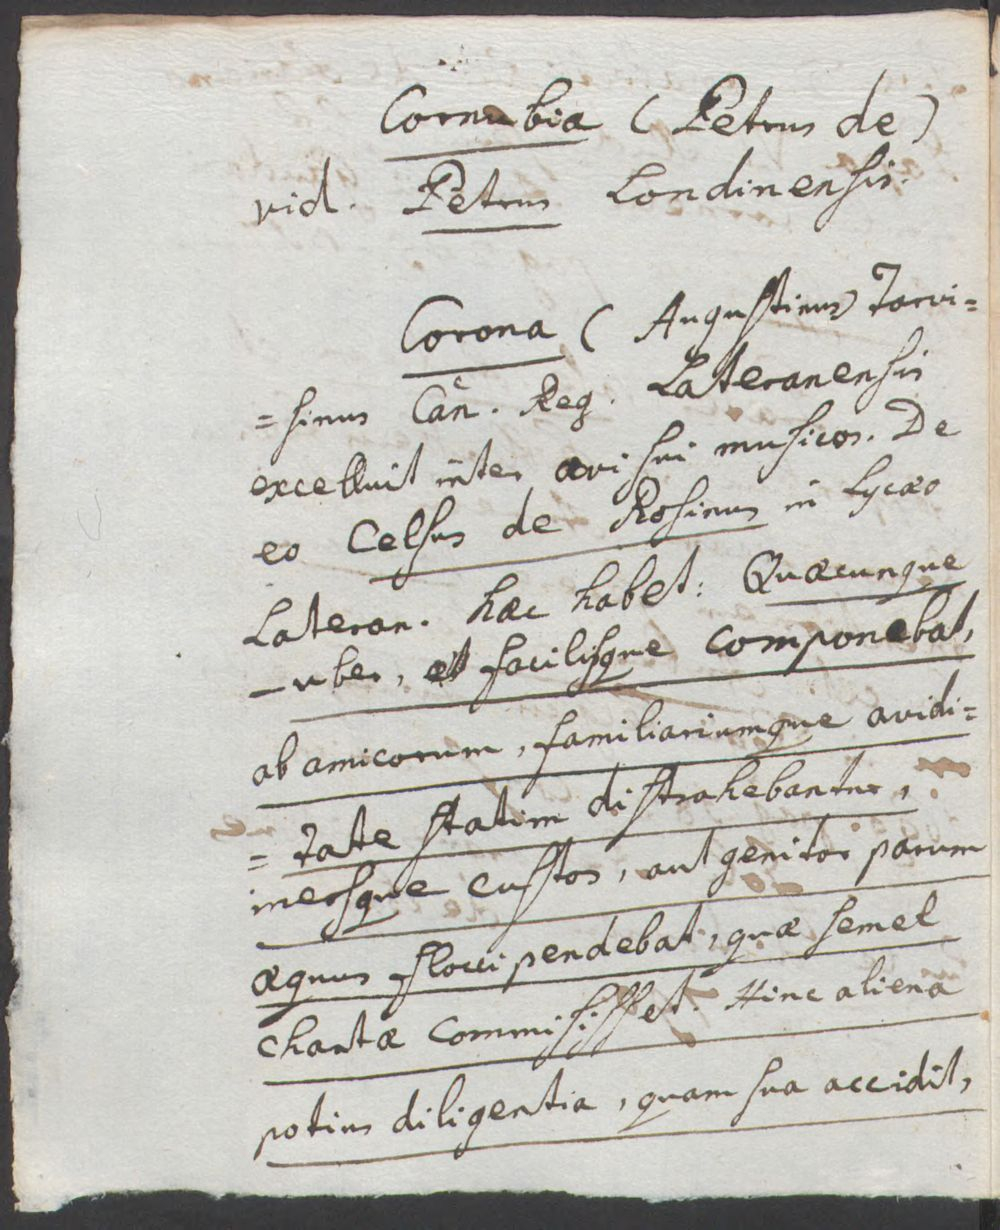 Cornubia (Petrus de)
vid. Petrus Londinensis.
Corona (Augustinus) Tarvi=
=sinus Can. Reg. Lateranensis
excelluit inter ævi sui musicos. De
eo Celsus de Rosinus in Lycæo
Lateran. hæc habet: Quæcunque
uber, et facilisque componebat,
ab amicorum, familiariumque avidi=
=tate statim distrahebantur,
inersque custos, aut genitor parum
æquus floccipendebat, quæ semel
chartæ commisisset. Hinc aliena
potius diligentia, quam sua accidit,